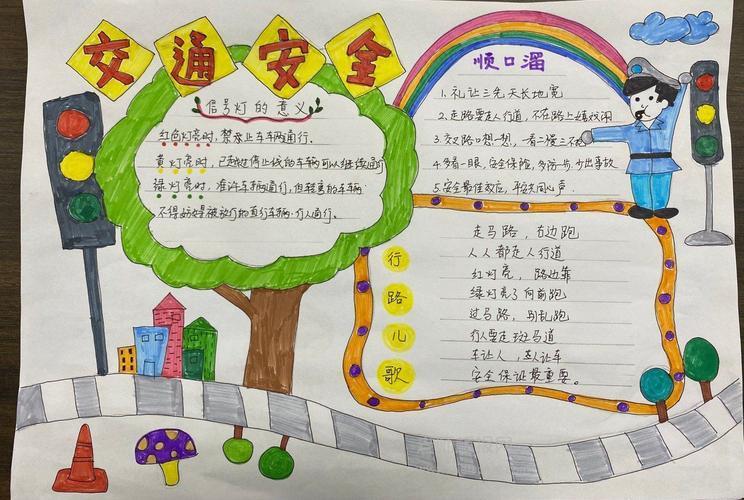 交通安全
信号灯的意义
红色灯亮时,禁止车车两通行.
黄灯亮时,已越过停止线的车辆可以继续通行
绿灯亮时,准许车辆通行,但转弯的车辆
不得妨碍被放行的直行车辆.行人通行。
顺口溜
1.礼让三先天长地宽
2.走路要走人行道,不在路上嬉戏闹
3.交叉路口想一想,一看二慢三不
4.多看一眼,安全保险,多防一步,少出事故
5.安全最佳效应,平安共同心声.
行路儿歌
走马路,右边跑
人人都走人行道
红灯亮,路边靠
绿灯亮了向前跑
过马路,别乱跑
行人要走斑马道
车让人,人让车
安全保证最重要。